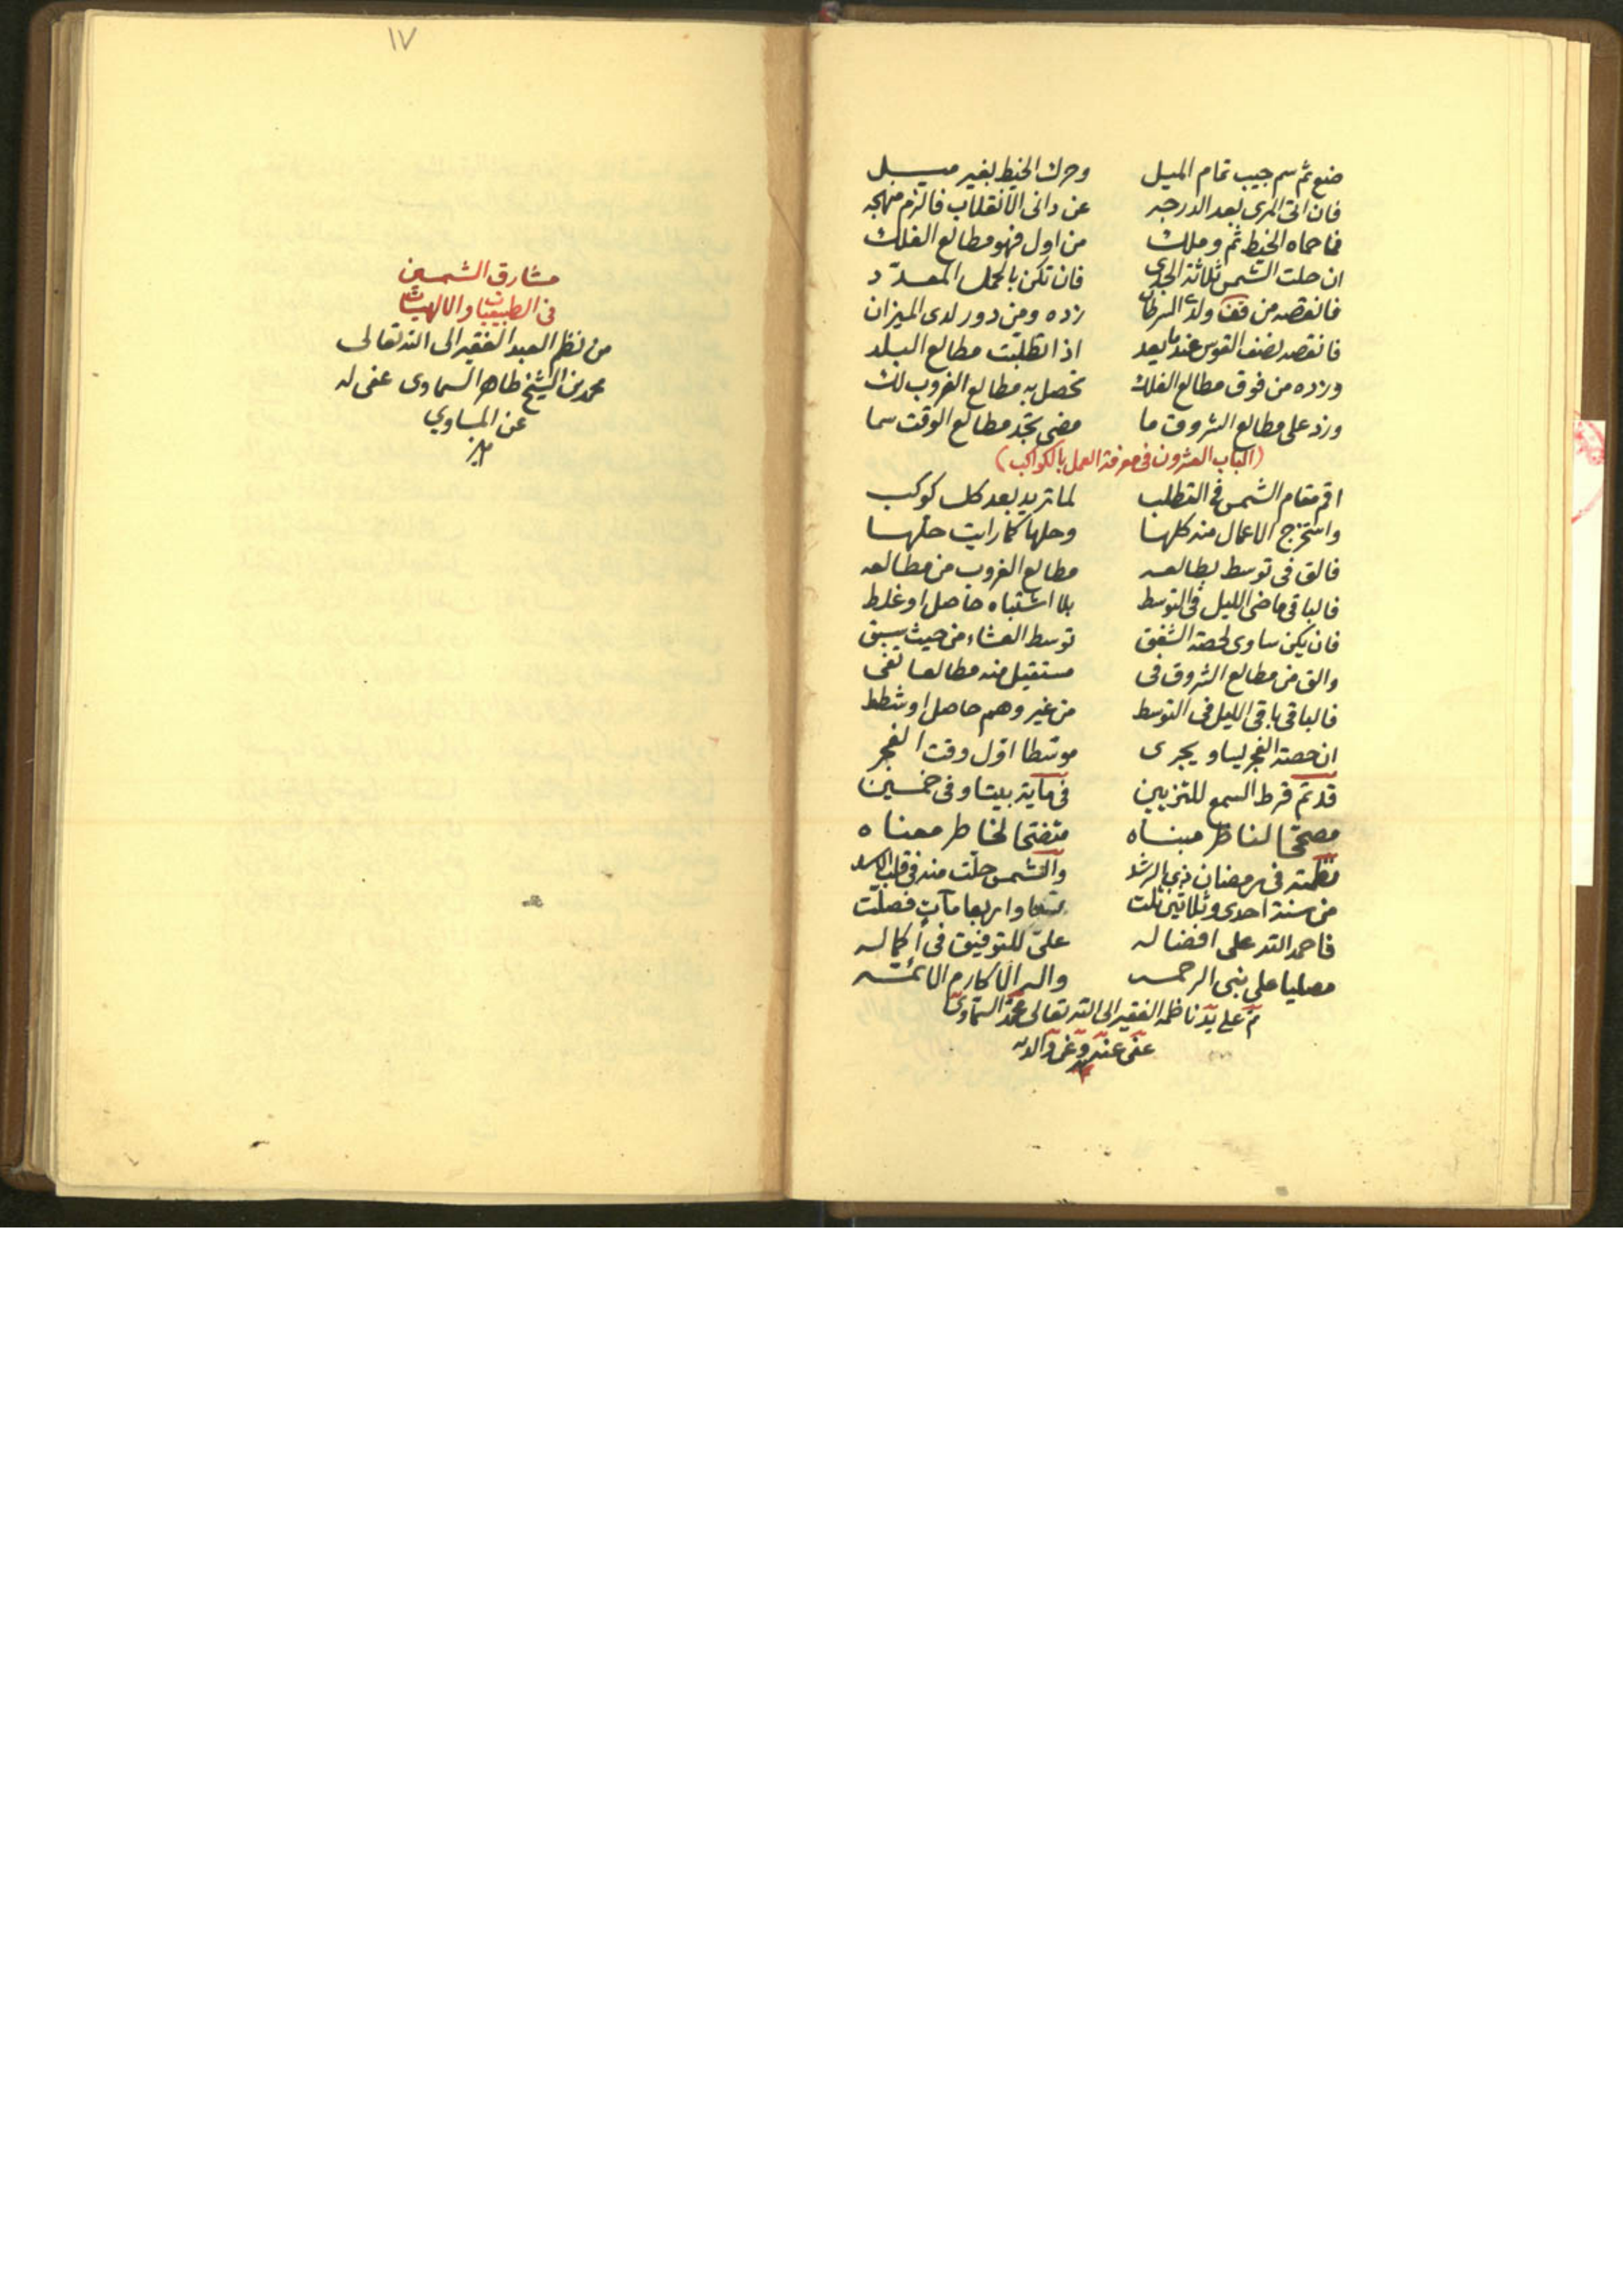 ضع ثم سم جيب تمام الميل وحرك الخيط بغير ميل
فان اتى المرى بعد الدرجه عن دانى الانقلاب فالزم منهجه
فما حماه الخيط ثم وملك من اول فهو مطالع الفلك
ان حلت الشمس ثلاثة الجدى فان تكن بالحمل المعدد
فانقصه من قف ولدى السرطان زده ومن دور لدى الميزان
فانقصه نصف القوس عندما يعد اذا تطلبت مطالع البلد
وزده من فوق مطالع الفلك تحصل به مطالع الغروب لك
وزد على مطالع الشروق ما مضى تجد مطالع الوقت سما
(الباب العشرون فى معرفة العمل بالكواكب)
اقم مقام الشمس فى التطلب لما تريد بعد كل كوكب
واستخرج الاعمال منه كلها وحلها كما رايت حلها
فالق فى توسط بطالعه مطالع الغروب من مطالعه
فالباقى ماضى الليل فى التوسط بلا اشتباه حاصل او غلط
فان يكن ساوى لحصة الشفق توسط العشاء من حيث سبق
والق من مطالع الشروق فى مستقبل منه مطالعا تفى
فالباقى باقى الليل فى التوسط من غير وهم حاصل او شطط
ان حصة الفجر يساو يجرى موسطا اول وقت الفجر
قد تم قرط السمع للتزيين فى مأية بيتا وفى خمسين
مصححا لناظر مبناه متضحا لخاطر معناه
نظمته فى رمضان ذى الرشد والشمس حلت منه فى قلب الاسد
من سنة احدى وثلاثين تلت واربعا مآت فصلت
فاحمد الله على افضاله على للتوفيق فى اكماله
مصليا على نبى الرحمه واله الاكارم الائمه
تم على يد ناظمه الفقير الى الله تعالى محمد السماوى
عفى عنه وعن والديه
١٧
مشارق الشمسين
فى الطبيعيات والالهيات
من نظم العبد الفقير الى الله تعالى
محمد بن الشيخ طاهر السماوى عفى له
عن المساوي